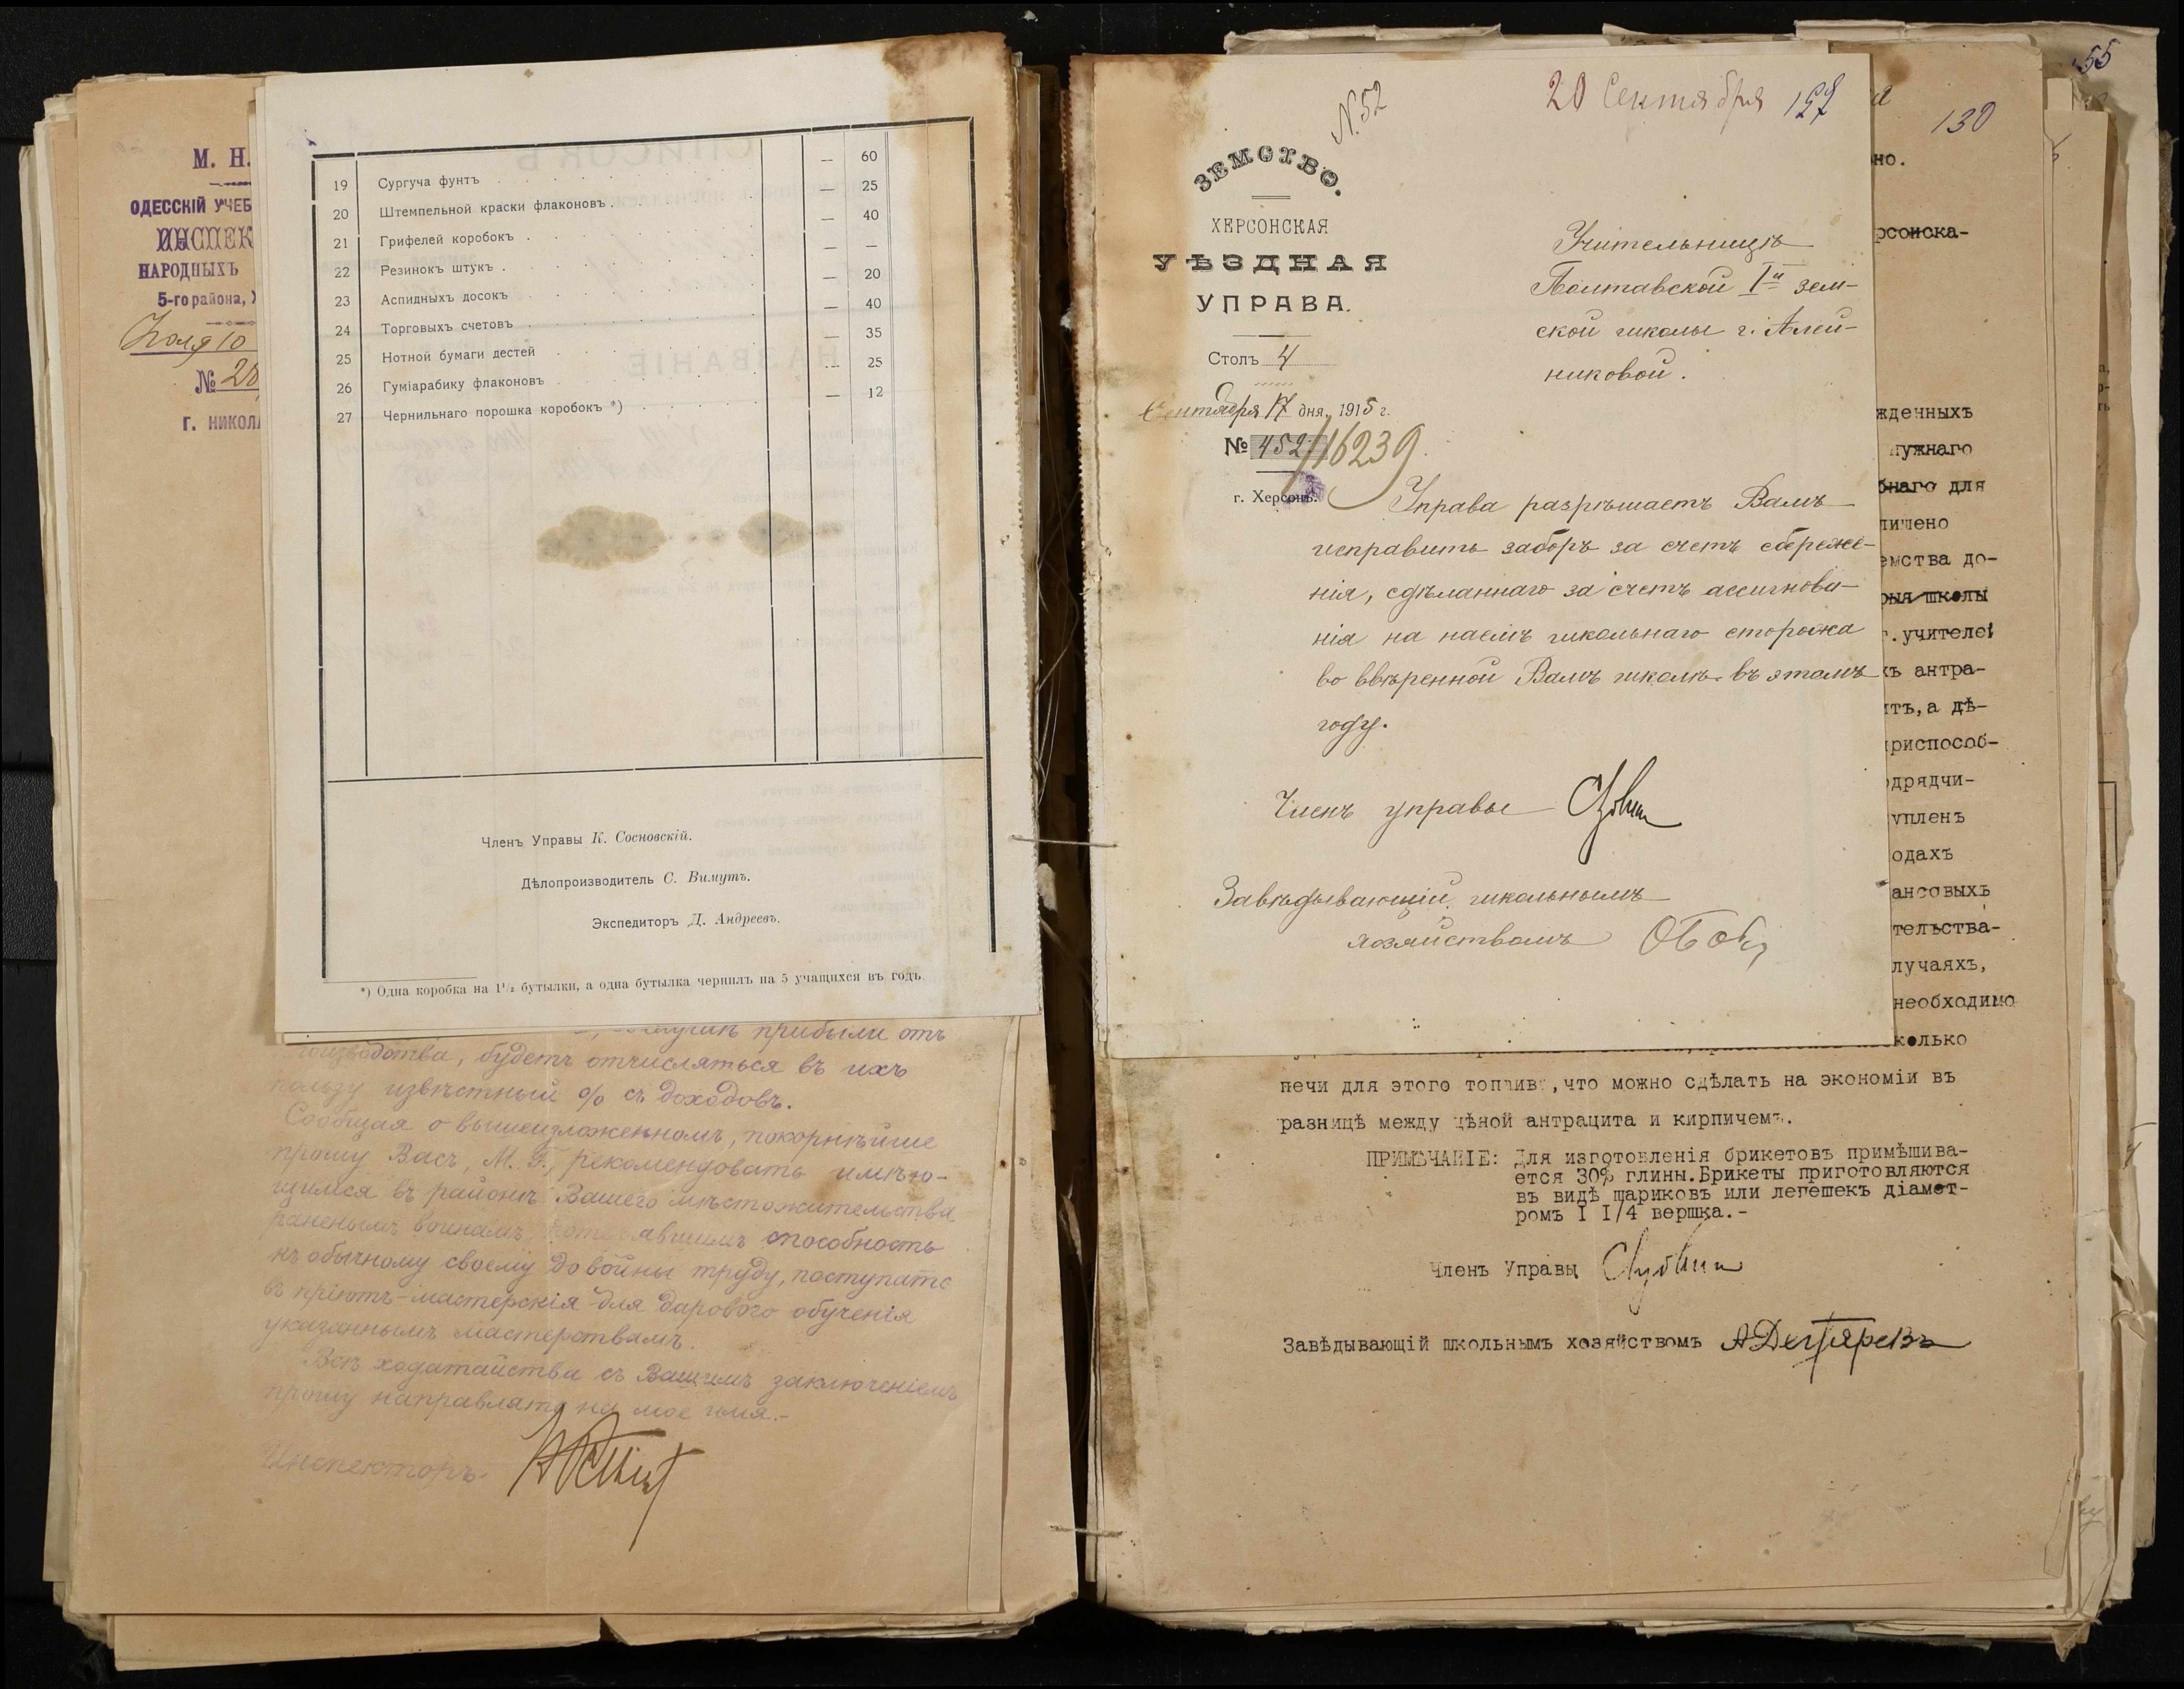 М. Н.
ОДЕССКІЙ УЧЕБ
ИНСПЕК
НАРОДНЫХЪ
5-го района,
№ 28
г. НИКОЛ
— 60
19 Сургуча фунтъ — 25
20 Штемпельной краски флаконовъ — 40
21 Грифелей коробокъ — —
22 Резинокъ штукъ — 20
23 Аспидныхъ досокъ — 40
24 Торговыхъ счетовъ — 35
25 Нотной бумаги дестей — 25
26 Гуміарабику флаконовъ — 12
27 Чернильнаго порошка коробокъ *)
Членъ Управы К. Сосновскій.
Дѣлопроизводитель С. Вимутъ.
Экспедиторъ Д. Андреевъ.
*) Одна коробка на 1½ бутылки, а одна бутылка чернилъ на 5 учащихся въ годъ.
прибыли отъ
производства, будетъ отчисляться въ ихъ
пользу извѣстный % съ доходовъ.
Сообщая о вышеизложенномъ, покорнѣйше
прошу Васъ, М. Г., рекомендовать имѣю-
щимся въ районѣ Вашего мѣстожительства
раненымъ воинамъ, способность
къ обычному своему до войны труду, поступать
въ пріютъ-мастерскія для дарового обученія
указаннымъ мастерствамъ.
Всѣ ходатайства съ Вашимъ заключеніемъ
прошу направлять на мое имя.-
Инспекторъ
N. 52
20 Сентября
55
130
ЗЕМСТВО.
ХЕРСОНСКАЯ
УѢЗДНАЯ
УПРАВА.
Столъ 4
Сентября 17 дня, 1915 г.
№ 452/16239
г. Херсонъ.
Учительницѣ
Полтавской I й зем-
ской школы г. Алей-
никовой.
Управа разрѣшаетъ Вамъ
исправить заборъ за счетъ сбереже-
нія, сдѣланнаго за счетъ ассигнова-
нія на наемъ школьнаго сторожа
во ввѣренной Вамъ школѣ въ этомъ
году.
Членъ управы
Завѣдывающій школьнымъ
хозяйствомъ
но.
рсонска-
жденныхъ
нужнаго
бнаго для
лишено
емства до-
рыя школы
г. учителей
хъ антра-
итъ, а дѣ-
приспособ-
одрядчи-
упленъ
одахъ
ансовыхъ
тельства-
лучаяхъ,
необходимо
колько
печи для этого топлива, что можно сдѣлать на экономіи въ
разницѣ между цѣной антрацита и кирпичемъ.
ПРИМѢЧАНІЕ: Для изготовленія брикетовъ примѣшива-
ется 30% глины. Брикеты приготовляются
въ видѣ шариковъ или лепешекъ діамет-
ромъ I I/4 вершка.-
Членъ Управы
Завѣдывающій школьнымъ хозяйствомъ А Дегтяревъ